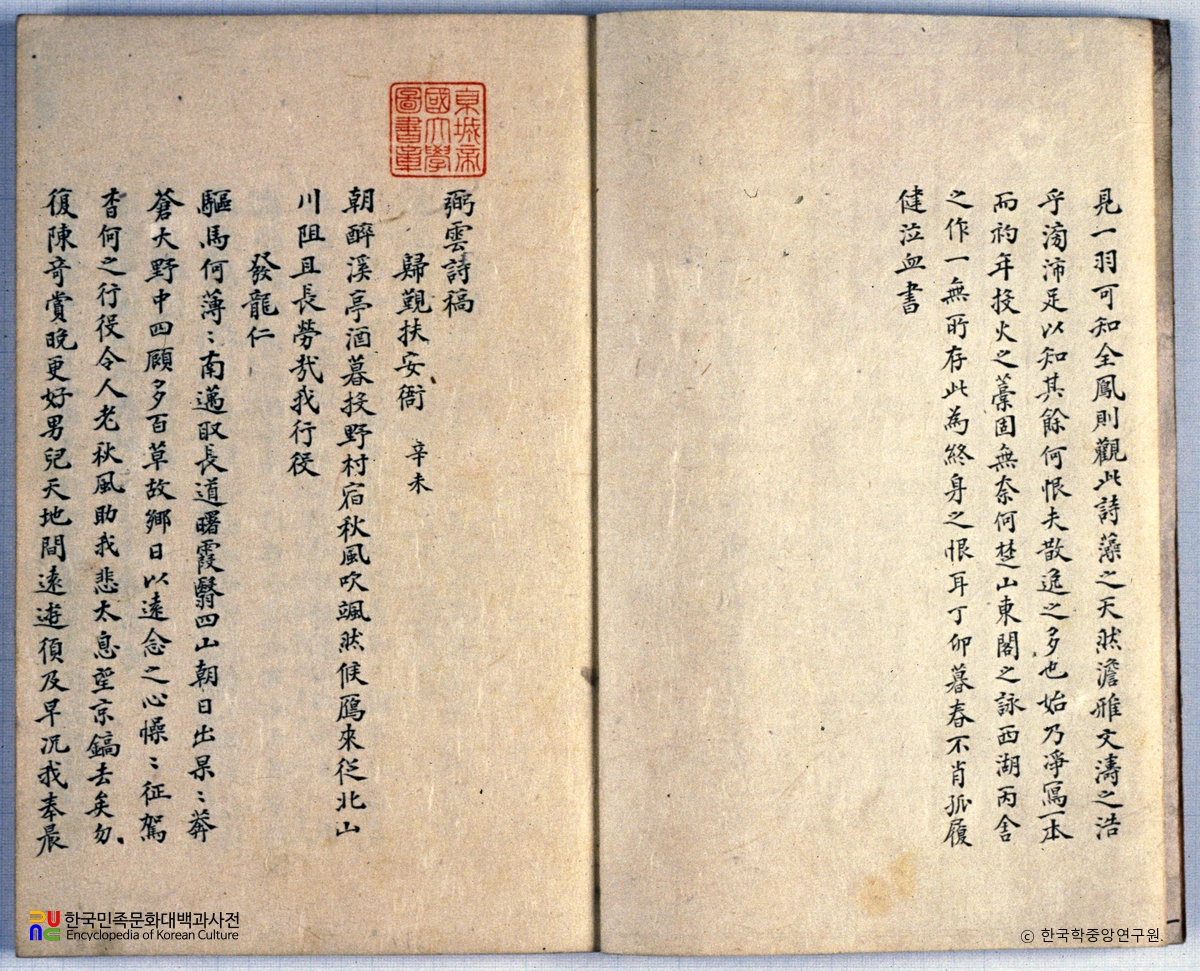 見一羽可知全鳳則觀此詩藻之天然澹雅文濤之浩
乎滂沛足以知其餘何恨夫散逸之多也始乃淨寫一本
而礿年投火之藁固無奈何楚山東閣之詠西湖丙舍
之作一無所存此為終身之恨耳丁卯暮春不肖孤履
健泣血書
京城帝
國大學
圖書章
弼雲詩稿
歸覲扶安衙 辛未
朝醉溪亭酒暮投野村宿秋風吹颯然候鴈來從北山
川阻且長勞哉我行役
發龍仁
驅馬何薄〻南邁取長道曙霞翳四山朝日出杲〻莽
蒼大野中四顧多百草故鄉日以遠念之心懆〻征駕
杳何之行役令人老秋風助我悲太息望京鎬去矣勿
復陳奇賞晚更好男兒天地間遠遊須及早况我奉晨
한국민족문화대백과사전
Encyclopedia of Korean Culture
ⓒ 한국학중앙연구원